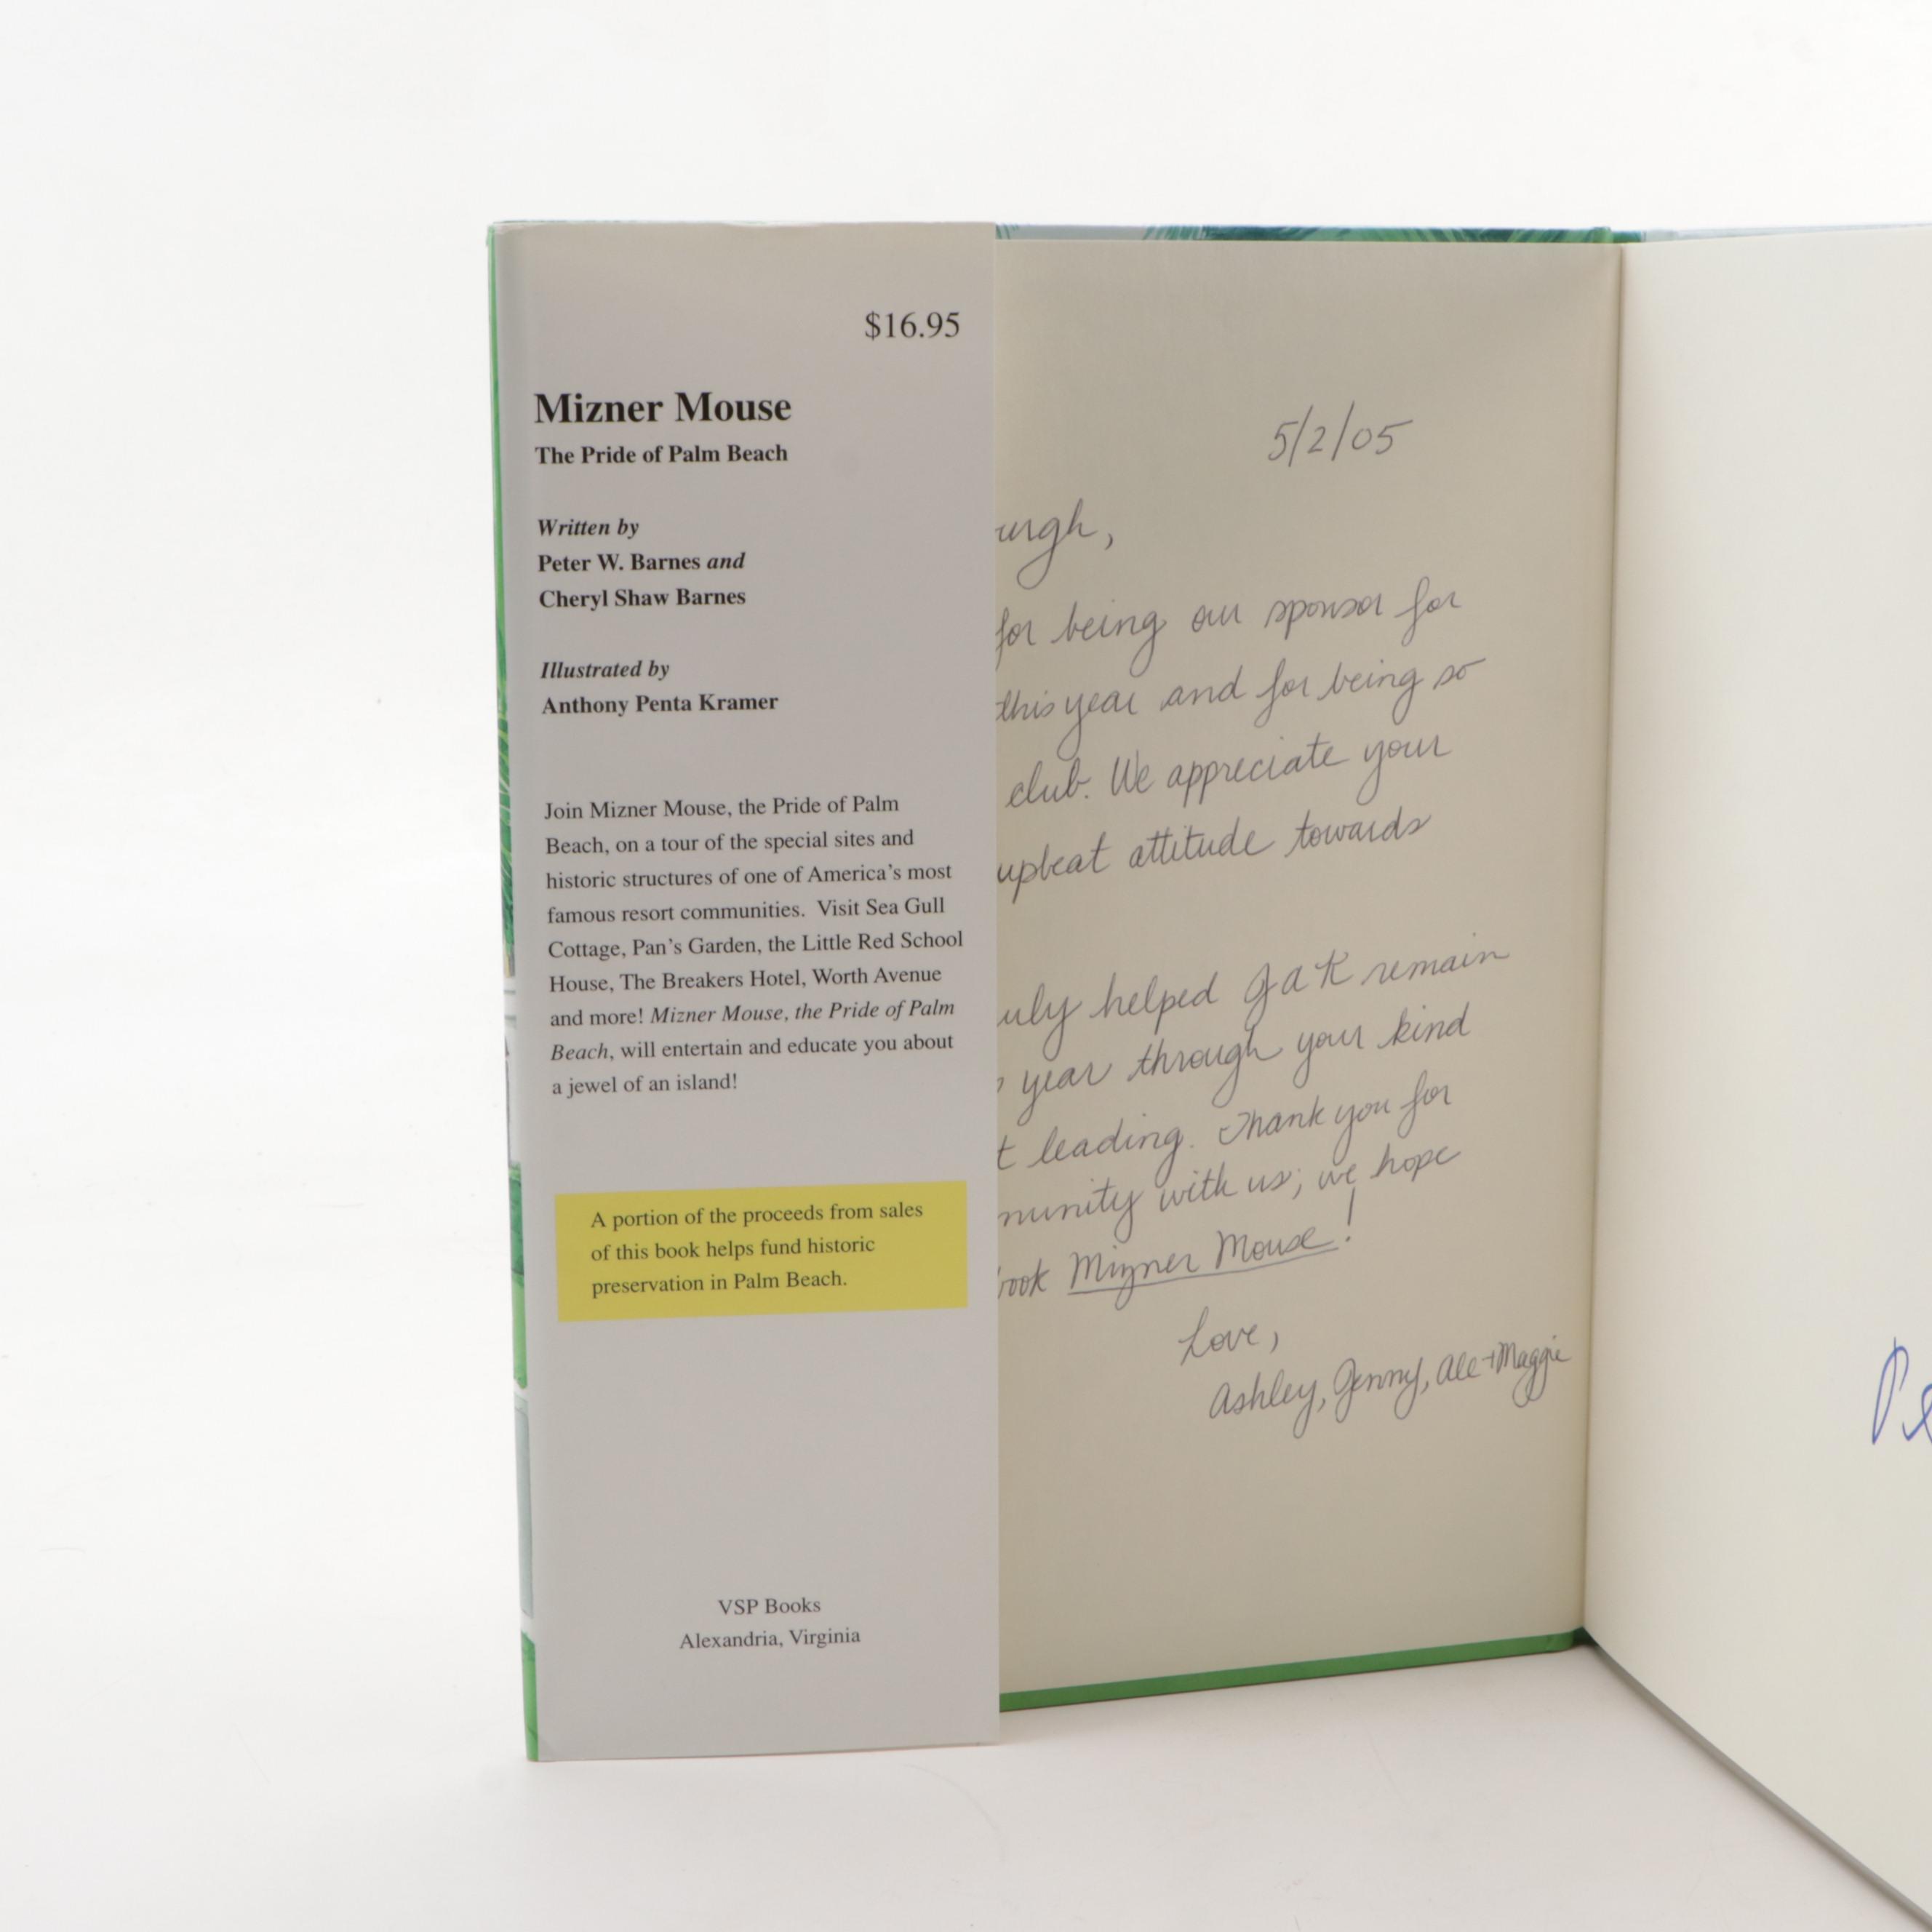 $16.95
Mizner Mouse
The Pride of Palm Beach
Written by
Peter W. Barnes and
Cheryl Shaw Barnes
Illustrated by
Anthony Penta Kramer
Join Mizner Mouse, the Pride of Palm
Beach, on a tour of the special sites and
historic structures of one of America's most
famous resort communities. Visit Sea Gull
Cottage, Pan's Garden, the Little Red School
House, The Breakers Hotel, Worth Avenue
and more! Mizner Mouse, the Pride of Palm
Beach, will entertain and educate you about
a jewel of an island!
A portion of the proceeds from sales
of this book helps fund historic
preservation in Palm Beach.
VSP Books
Alexandria, Virginia
5/2/05
urgh,
for being our sponsor for
this year and for being so
club. We appreciate your
upbeat attitude towards
uly helped JAK remain
year through your kind
t leading. Thank you for
munity with us; we hope
book Mizner Mouse!
Love,
Ashley, Jenny, Ale + Maggie
Pe